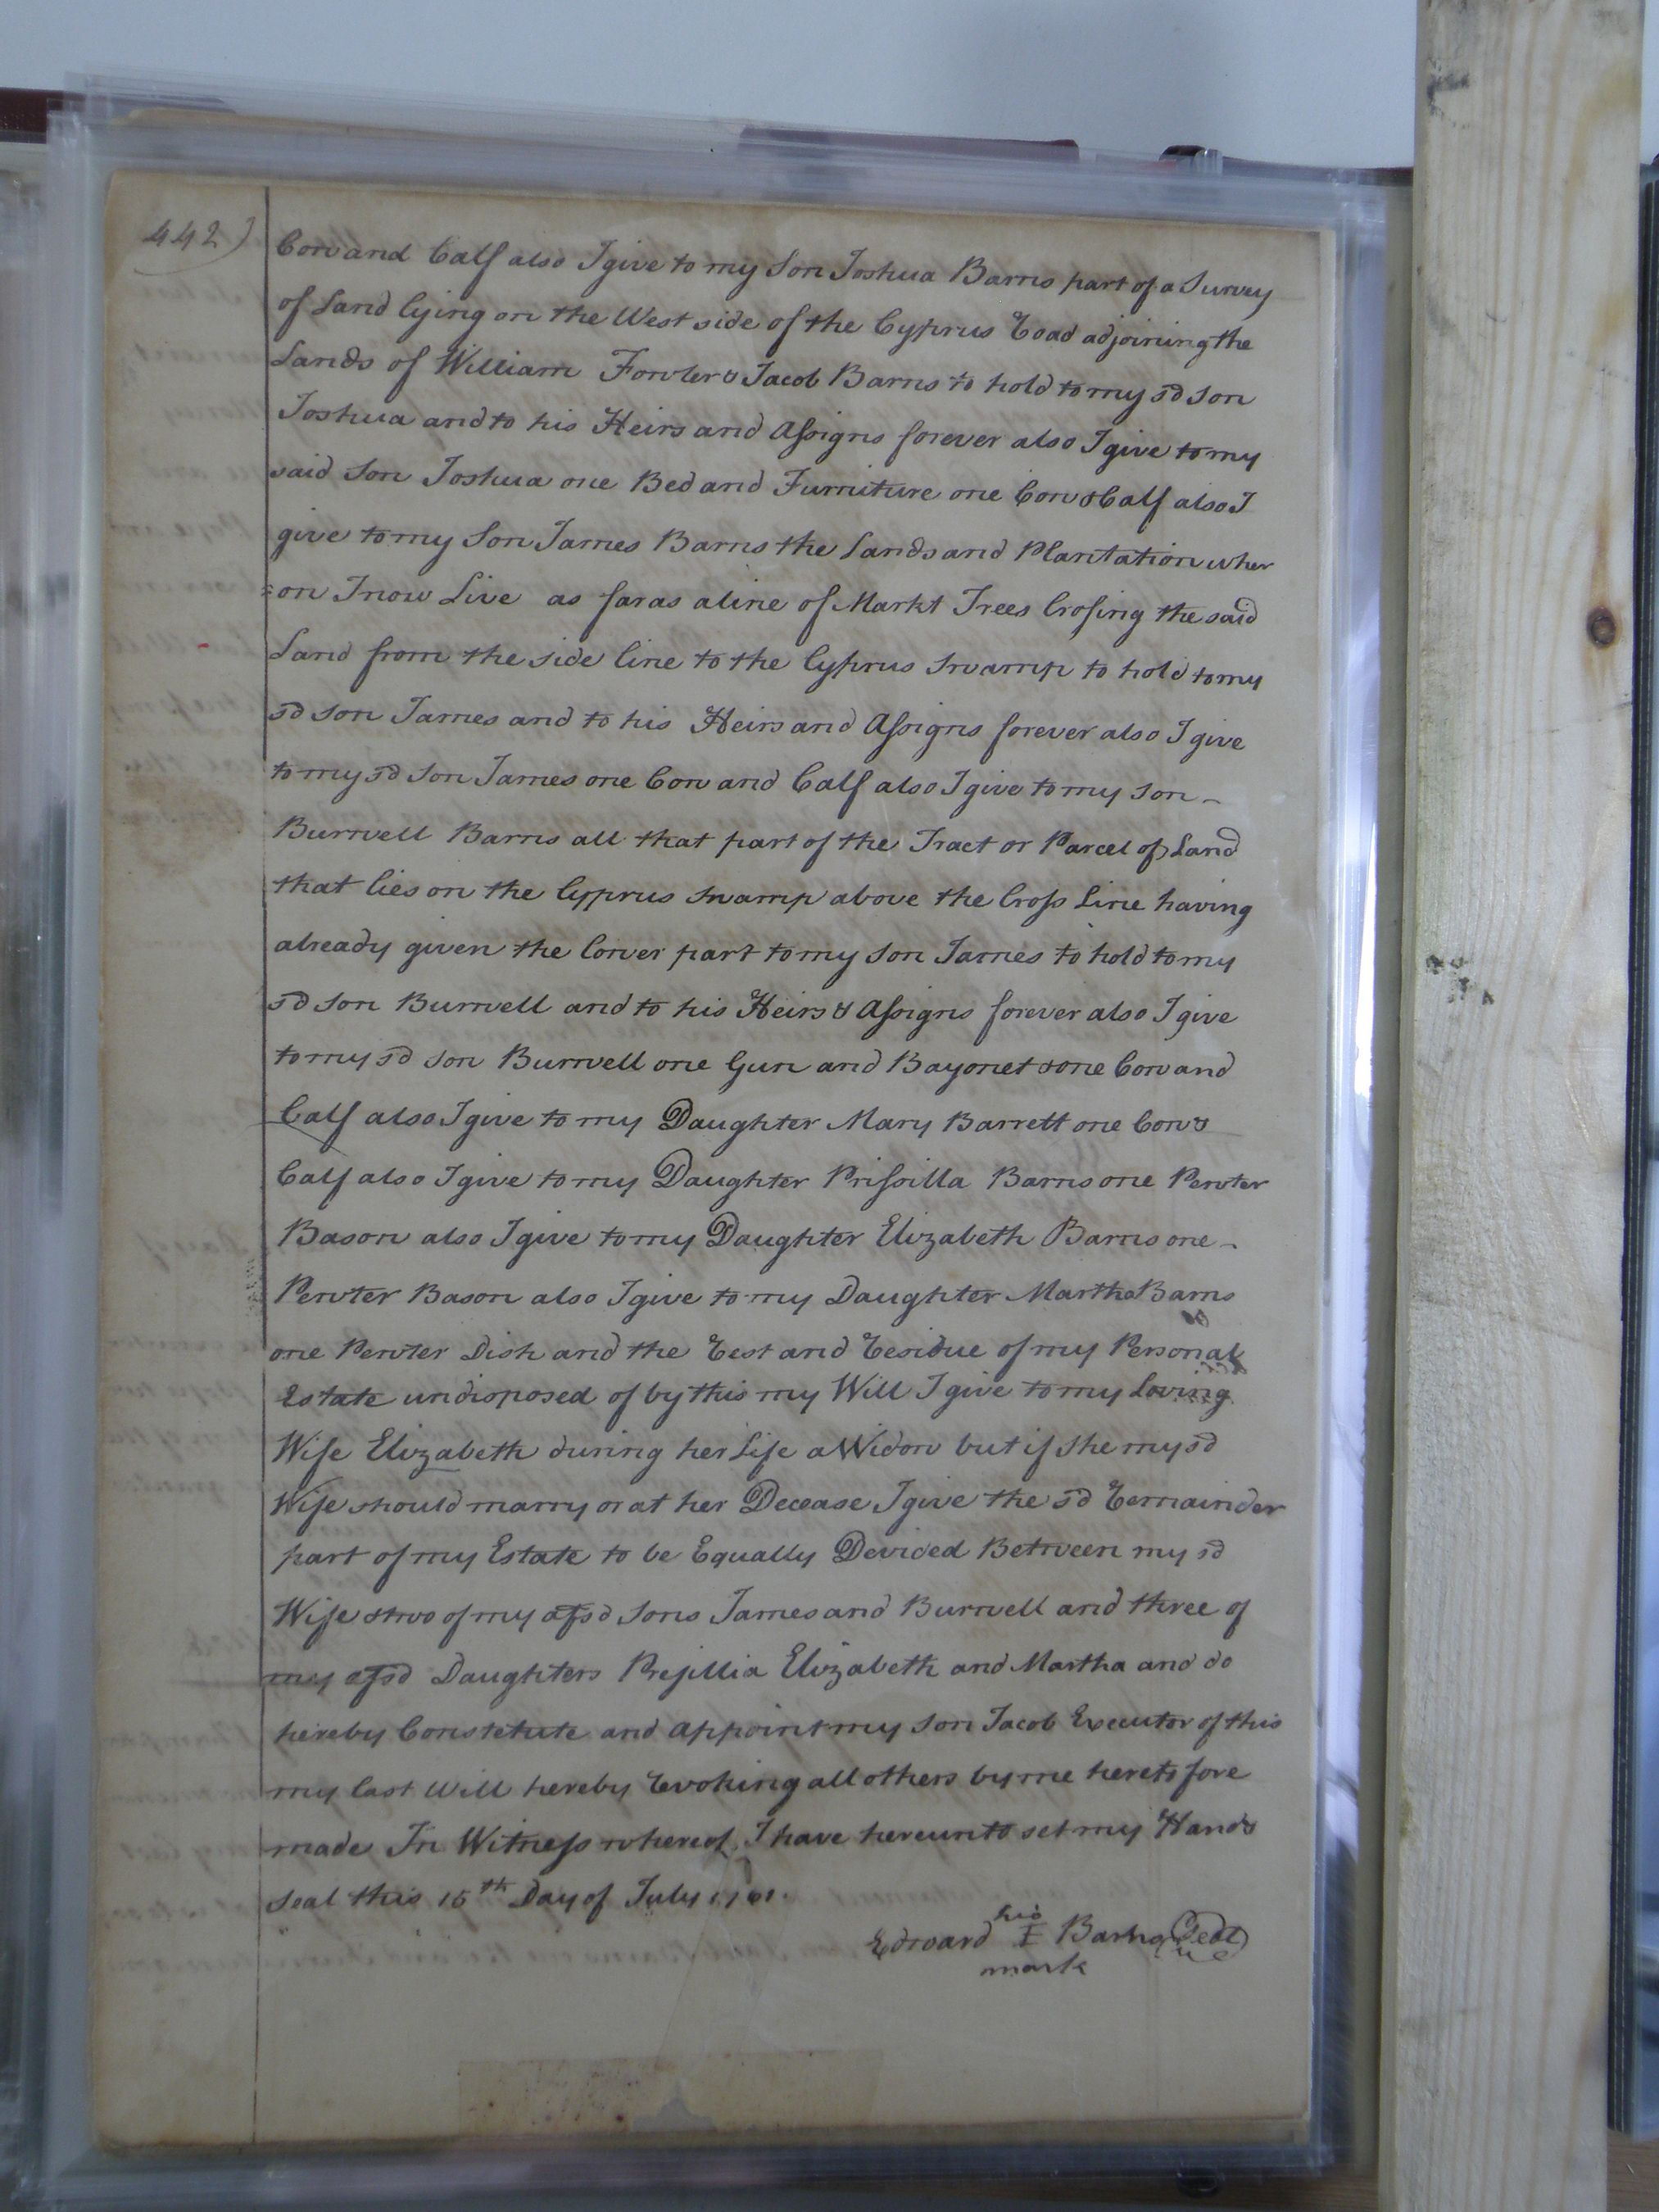 442)
Cow and Calf also I give to my Son Joshua Barns part of a Survey
of Land lying on the West side of the Cyprus Road adjoining the
Lands of William Fowler & Jacob Barns to hold to my sd son
Joshua and to his Heirs and Assigns forever also I give to my
said Son Joshua one Bed and Furniture one Cow & Calf also I
give to my Son James Barns the Lands and Plantation wher
=on I now Live as far as a line of Markt Trees Crosing the said
Land from the side line to the Cyprus Swamp to hold to my
sd son James and to his Heirs and Assigns forever also I give
to my sd son James one Cow and Calf also I give to my son
Burwell Barns all that part of the Tract or Parcel of Land
that lies on the Cyprus Swamp above the Cross Line having
already given the lower part to my son James to hold to my
sd son Burwell and to his Heirs & Assigns forever also I give
to my sd son Burwell one Gun and Bayonet & one Cow and
Calf also I give to my Daughter Mary Barrett one Cow &
Calf also I give to my Daughter Prissilla Barns one Pewter
Bason also I give to my Daughter Elizabeth Barns one
Pewter Bason also I give to my Daughter Martha Barns
one Pewter Dish and the Rest and Residue of my Personal
Estate undisposed of by this my Will I give to my Loving
Wife Elizabeth during her Life a Widow but if She my sd
Wife should marry or at her Decease I give the sd Remainder
part of my Estate to be Equally Devided Between my sd
Wife & two of my afsd Sons James and Burwell and three of
my afsd Daughters Presillia Elizabeth and Martha and do
hereby Constetute and appoint my Son Jacob Executor of this
my last Will hereby Revoking all others by me heretofore
made In Witness whereof I have hereunto set my Hand &
Seal this 15th Day of July 1761.
his
Edward I Barns Seal
mark